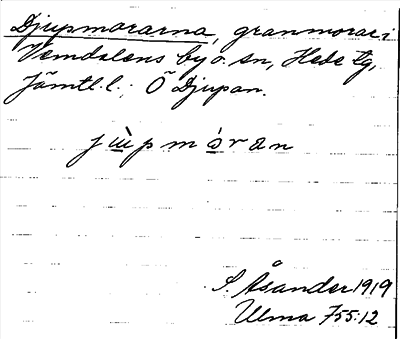 Djupmorarna, granmorar i
Vemdalens by o. sn, Hede tg,
Jämtl. l. Ö Djupan.
jùpmòran
S. Åsander 1919
Ulma 755:12